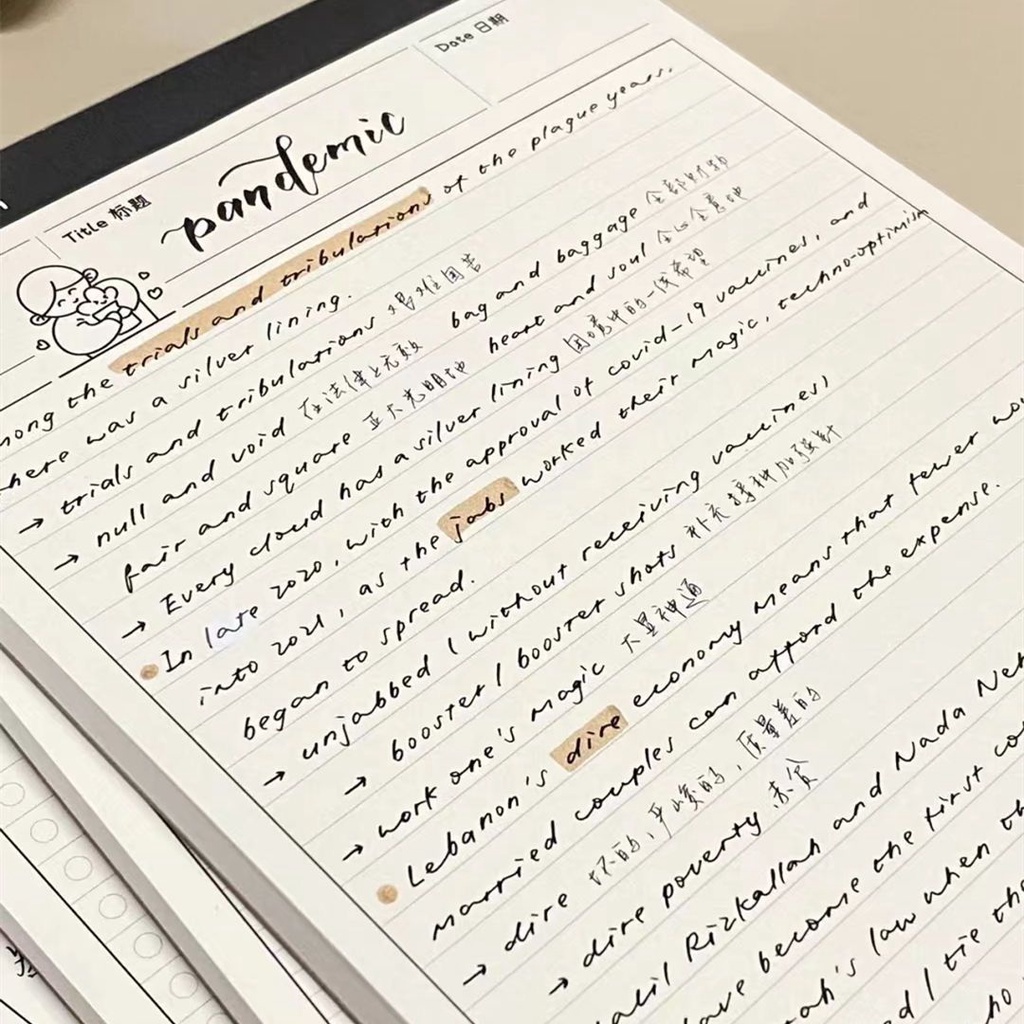 Date 日期
Title 标题
pandemic
mong the trials and tribulations of the plague years,
here was a silver lining.
→ trials and tribulations 艰难困苦 bag and baggage 全部财物
→ null and void 在法律上无效 heart and soul 全心全意地
fair and square 正大光明地
→ Every cloud has a silver lining 困境中的一线希望
In late 2020, with the approval of covid-19 vaccines, and
into 2021, as the jabs worked their magic, techno-optimism
began to spread.
→ unjabbed (without receiving vaccines)
→ booster / booster shots 补充接种加强针
→ work one's magic 大显神通
Lebanon's dire economy means that fewer
married couples can afford the expense.
→ dire 坏的,严峻的,质量差的
→ dire poverty 赤贫
Rizkallah and Nada
become the first
law when
tie the